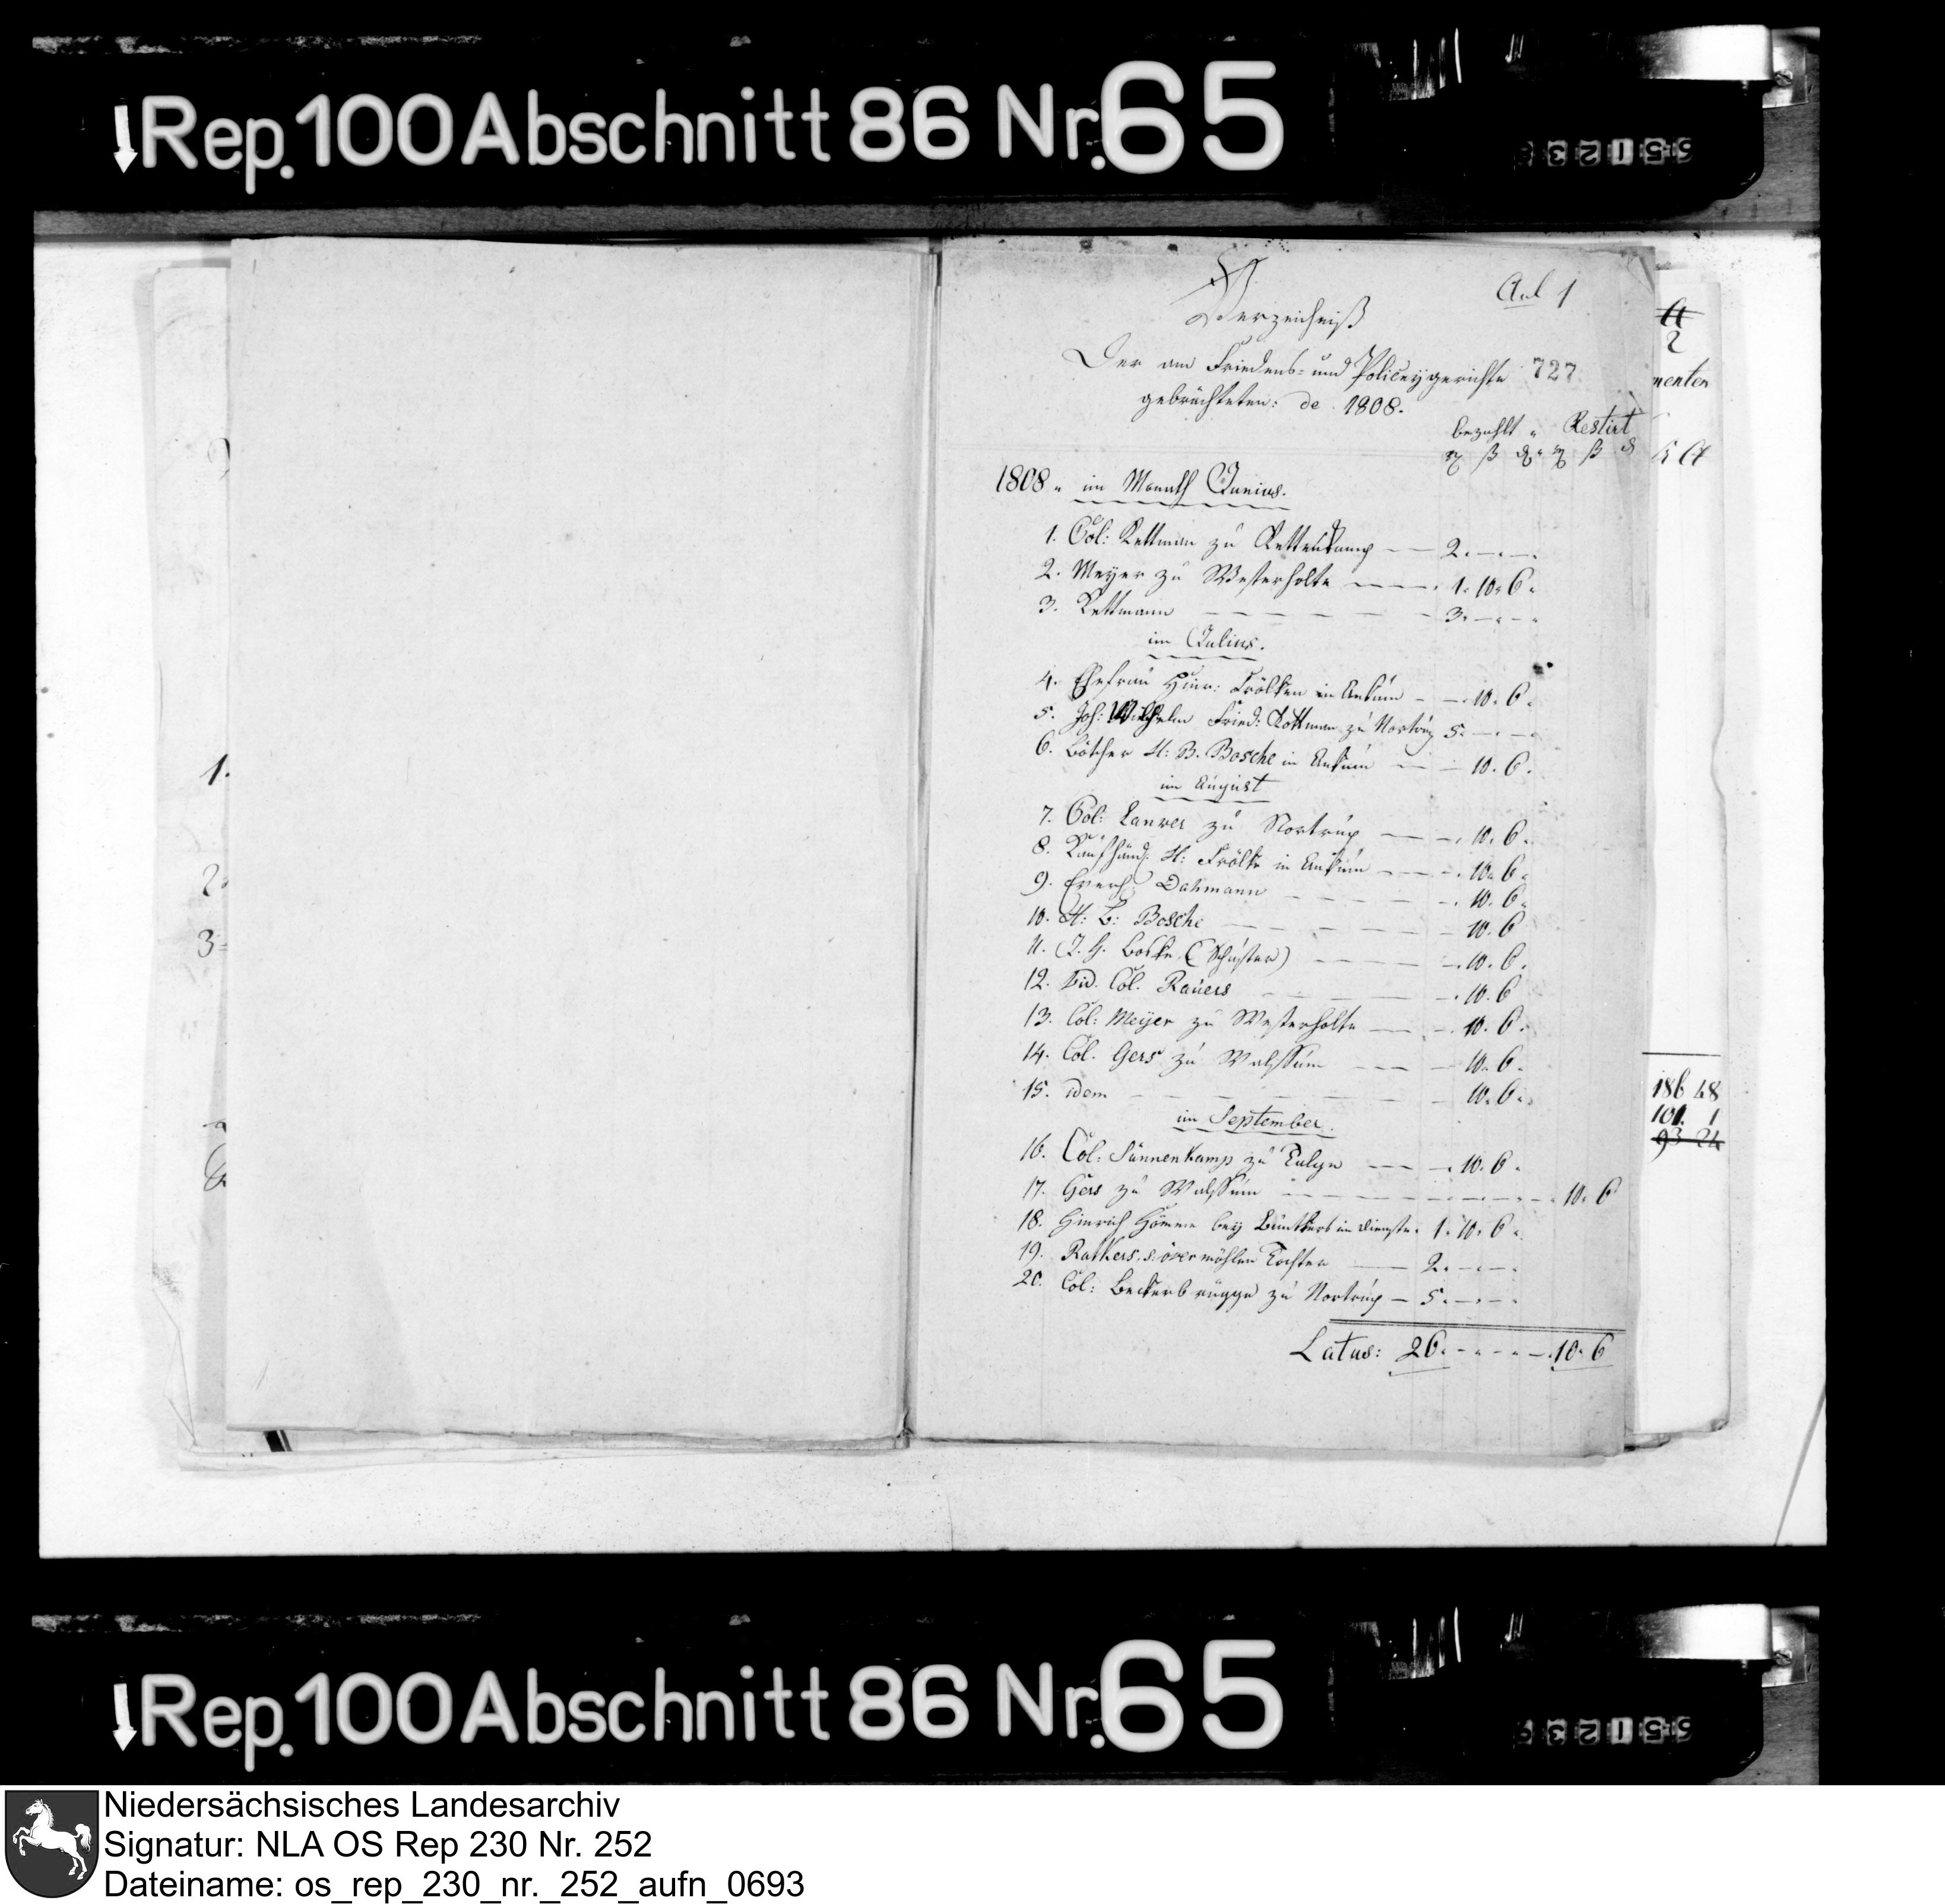 Rep. 100 Abschnitt 86 Nr. 65
Anl 1
Verzeichniß
Der am Friedens- und Policeygerichte 727
gebrüchteten: de 1808.
bezahlt " Restirt
1808 " im Monath Junius.
1. Col: Kettman zu Kettenkamp — 2. — . — .
2. Meyer zu Westerholte — 1. 10. 6.
3. Kettmann — 3. — . — .
im Julius.
4. Ehefrau Hinr: Frölken in Ankum — 10. 6.
5. Joh: Wilhelm Fried: Kottman zu Nortrup 5. — . —
6. Bötcher H: B. Bosche in Ankum — 10. 6.
im August
7. Col: Lanver zu Nortrup — 10. 6.
8. Kaufhänd. H: Frölke in Ankum — 10. 6.
9. Everh Dahmann — 10. 6.
10. H: B: Bosche — 10. 6
11. J. H. Boske (Schuster) — 10. 6.
12. Col. Rauers — 10. 6
13. Col: Meyer zu Westerholte — 10. 6.
14. Col. Gers zu Walssum — 10. 6.
15. idem — 10. 6.
im September.
16. Col: Sünnenkamp zu — 10. 6.
17. Gers zu Walssum — 10. 6
18. Hinrich Hömme bey im Dienste. 1. 10. 6.
19. Rathers, s. över möhlen Tochter — 2. — . —
20. Col: Beckerbrügge zu Nortrup — 5. — . —
Latus: 26. — 10. 6
menten
186 48
101. 1
93 24
1.
2.
3
Rep. 100 Abschnitt 86 Nr. 65
Niedersächsisches Landesarchiv
Signatur: NLA OS Rep 230 Nr. 252
Dateiname: os_rep_230_nr._252_aufn_0693